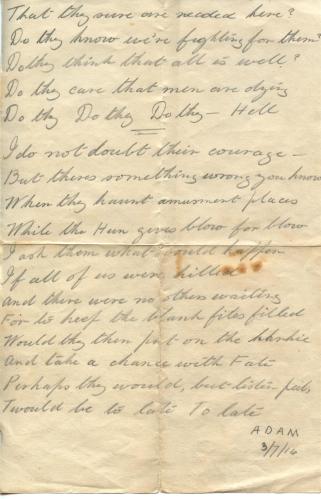 That they sure are needed here?
Do they know we're fighting for them?
Do they think that all is well?
Do they care that men are dying
Do thy Do they Do they – Hell
I do not doubt their courage –
But theres something wrong you know
When they haunt amusment places
While the Hun gives blow for blow
I ask them what would happen
If all of us were killed
And there were no others waiting
For to keep the blank files filled
Would they then put on the khakie
And take a chance with Fate
Perhaps they would, but listen pals
Twould be to late To late
ADAM
3/7/16